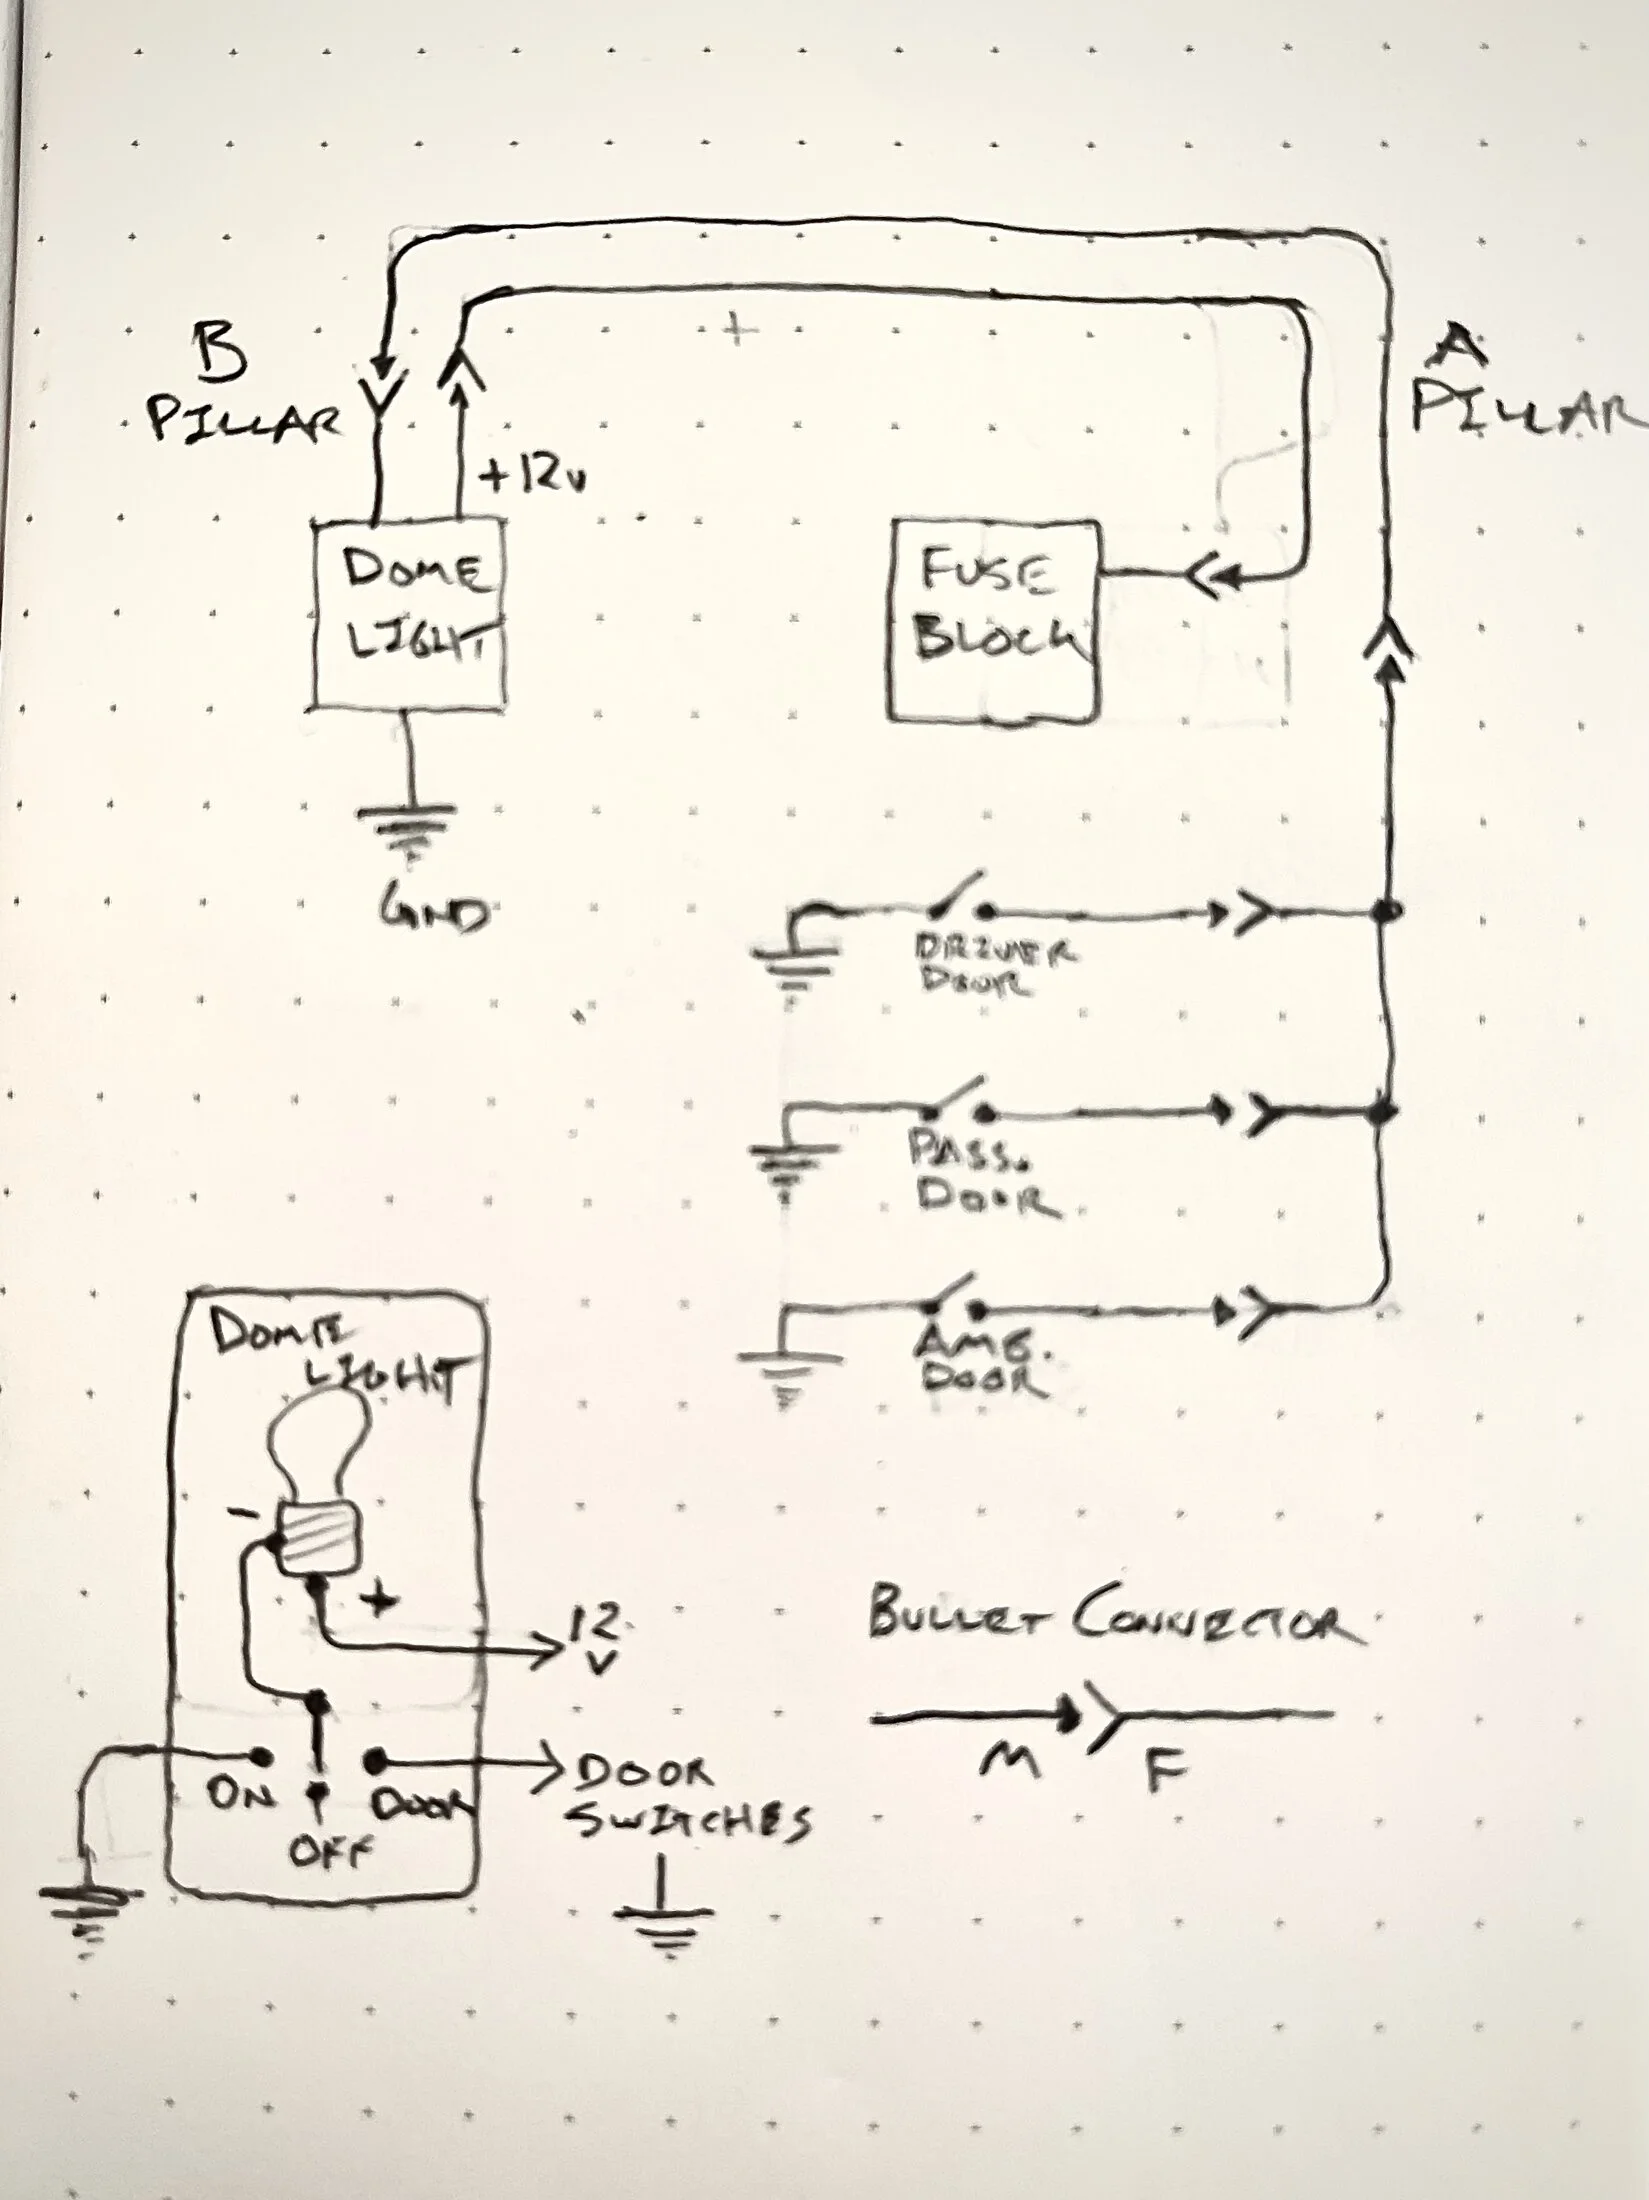 B
PILLAR
A
PILLAR
+12v
DOME
LIGHT
FUSE
BLOCK
GND
DRIVER
DOOR
PASS.
DOOR
DOME
LIGHT
DOOR
-
+
12
V
BULLET CONNECTOR
M
F
ON
DOOR
OFF
DOOR
SWITCHES